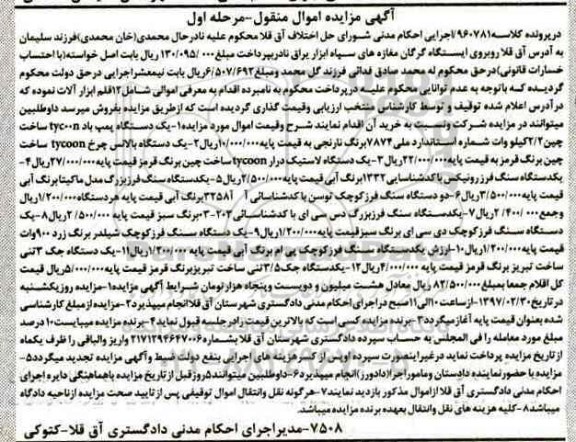 آگهی مزایده اموال منقول-مرحله اول
درپرونده کلاسه ۹۶۰۷۸۱/اجرایی احکام مدنی شورای حل اختلاف آق قلا محکوم علیه نادرحال محمدی(خان محمدی)فرزند سلیمان
به آدرس آق قلا روبروی ایستگاه گرگان مغازه های سپاه ابزار یراق نادربپرداخت مبلغ ۱۳۰/۰۹۵/۰۰۰ ریال بابت اصل خواسته(با احتساب
خسارات قانونی)درحق محکوم له محمد صادق فدائی فرزند گل محمد ومبلغ ۶/۵۰۷/۶۹۲ریال بابت نیمعشراجرایی درحق دولت محکوم
گردیده که باتوجه به عدم توانایی محکوم علیه درپرداخت محکوم به نامبرده اقدام به معرفی اموالی شامل ۱۲قلم ابزار آلات نموده که
درآدرس اعلام شده توقیف و توسط کارشناس منتخب ارزیابی وقیمت گذاری گردیده است که ازطریق مزایده بفروش میرسد داوطلبین
میتوانند در مزایده شرکت ونسبت به خرید آن اقدام نمایند شرح وقیمت اموال مورد مزایده۱-یک دستگاه پمپ باد tycoon ساخت
چین۲/۲کیلو وات شماره استاندارد ملی۷۸۷۴برنگ نارنجی به قیمت پایه۱۰/۰۰۰/۰۰۰ریال۲-یک دستگاه بالانس چرخ tycoon ساخت
چین برنگ قرمز به قیمت پایه۲۲/۰۰۰/۰۰۰ریال۳-یک دستگاه لاستیک درار tycoon ساخت چین برنگ قرمز قیمت پایه۲۷/۰۰۰/۰۰۰ریال۴-
یکدستگاه سنگ فرز رونیکس با کدشناسایی۱۳۳۲برنگ آبی قیمت پایه۲/۵۰۰/۰۰۰ریال۵-یکدستگاه سنگ فرزبزرگ مدل ماکیتا برنگ آبی
قیمت پایه۳/۵۰۰/۰۰۰ریال۶-دو دستگاه سنگ فرزکوچک توسن با کدشناسایی آ۳۲۵۸برنگ آبی قیمت پایه هردستگاه۱/۲۰۰/۰۰۰ریال
وجمع۲/۴۰۰/۰۰۰ریال۷-یکدستگاه سنگ فرزبزرگ دس سی ای با کدشناسائی ۲۰۲-۰۳برنگ سبز قیمت پایه ۲/۵۰۰/۰۰۰ریال۸-یک
دستگاه سنگ فرزکوچک دی سی ای برنگ سبزقیمت پایه۱/۲۰۰/۰۰۰ریال۹-یک دستگاه سنگ فرزکوچک شیلدر برنگ زرد ۹۰۰وات
قیمت پایه۱/۲۰۰/۰۰۰ریال۱۰-ارزش یکدستگاه سنگ فرزکوچک پی ام برنگ آبی قیمت پایه۱/۲۰۰/۰۰۰ریال۱۱-یک دستگاه جک ۳تنی
ساخت تبریز برنگ قرمز قیمت پایه ۴/۰۰۰/۰۰۰ریال۱۲-یکدستگاه جک۳/۵تنی ساخت تبریزبرنگ قرمز قیمت پایه ۵/۰۰۰/۰۰۰ریال قیمت
کل اقلام جمعا بمبلغ ۸۲/۵۰۰/۰۰۰ ریال معادل هشت میلیون و دویست وپنجاه هزارتومان شرایط آگهی مزایده۱-مزایده روزیکشنبه
در تاریخ ۱۳۹۷/۰۲/۳۰-ازساعت ۱۰الی۱۱صبح دراجرای احکام مدنی دادگستری شهرستان آق قلاانجام میپذیرد۲-مزایده ازمبلغ کارشناسی
شده بعنوان قیمت پایه آغازمیگردد۳-برنده مزایده کسی است که بالاترین قیمت را در جلسه قبول نماید۴-برنده مزایده میبایست۱۰درصد
مبلغ مورد معامله را فی المجلس به حساب سپرده دادگستری شهرستان آق قلا بشماره ۲۱۷۱۲۹۴۶۴۷۰۰۶ واریز والباقی را ظرف یکماه
ازتاریخ مزایده پرداخت نماید درغیراینصورت سپرده اوپس از کسرهزینه های اجرایی بنفع دولت ضبط وآگهی مزایده تجدید میگردد۵-
مزایده با حضورنماینده دادستان ومامور اجرا(دادورز)انجام میپذیرد۶-داوطلبین میتوانند۵روزقبل ازتاریخ مزایده باهماهنگی دایره اجرای
احکام مدنی دادگستری آق قلا ازاموال مذکور بازدید نمایند۷-هرگونه نقل وانتقال اموال توقیفی پس از تایید صحت مزایده ازناحیه دادگاه
میباشد۸-کلیه هزینه های نقل وانتقال بعهده برنده مزایده میباشد.
۷۵۰۸-مدیراجرای احکام مدنی دادگستری آق قلا-کتوکی